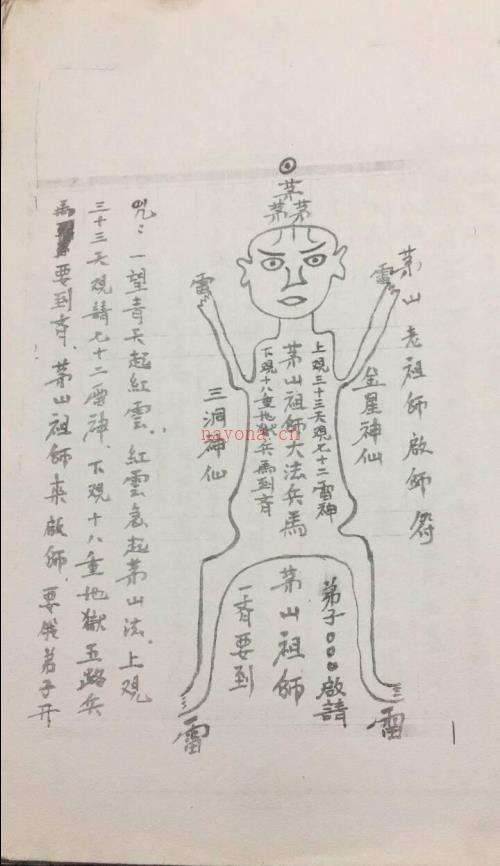 茅山老祖師啟師符
金星神仙
茅
茅茅
雷
雷
上覌三十三天覌七十二雷神
茅山祖師大法兵馬
下覌十八重地獄兵馬到斉
三洞神仙
弟子○○○啟請
茅山祖師
一斉要到
雷
雷
咒：一望青天起紅雲．紅雲急起茅山法．上覌
三十三天覌請七十二雷神．下覌十八重地獄五路兵
馬要到斉．茅山祖師来啟師．要俄弟子开
nayona.cn